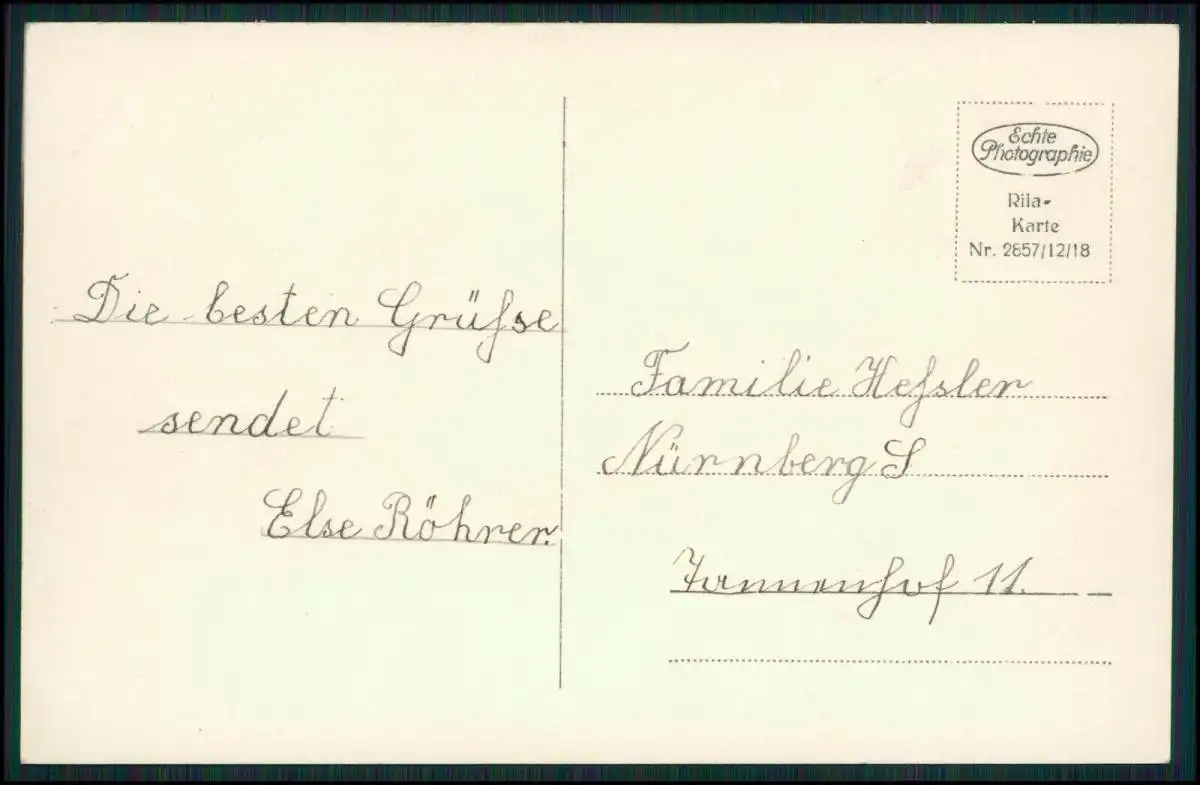 Die besten Grüße
sendet
Else Röhrer.
Echte
Photographie
Rila-
Karte
Nr. 2857/12/18
Familie Heßler
Nürnberg S
Tannenhof 11.